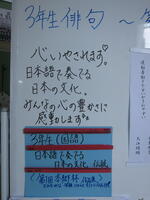 3年生俳句 ~
心いやされます。
日本語で奏でる
日本の文化。
みんなの心の豊かさに
感動します。
3年生(国語)
日本語で奏でる
日本の文化、伝統